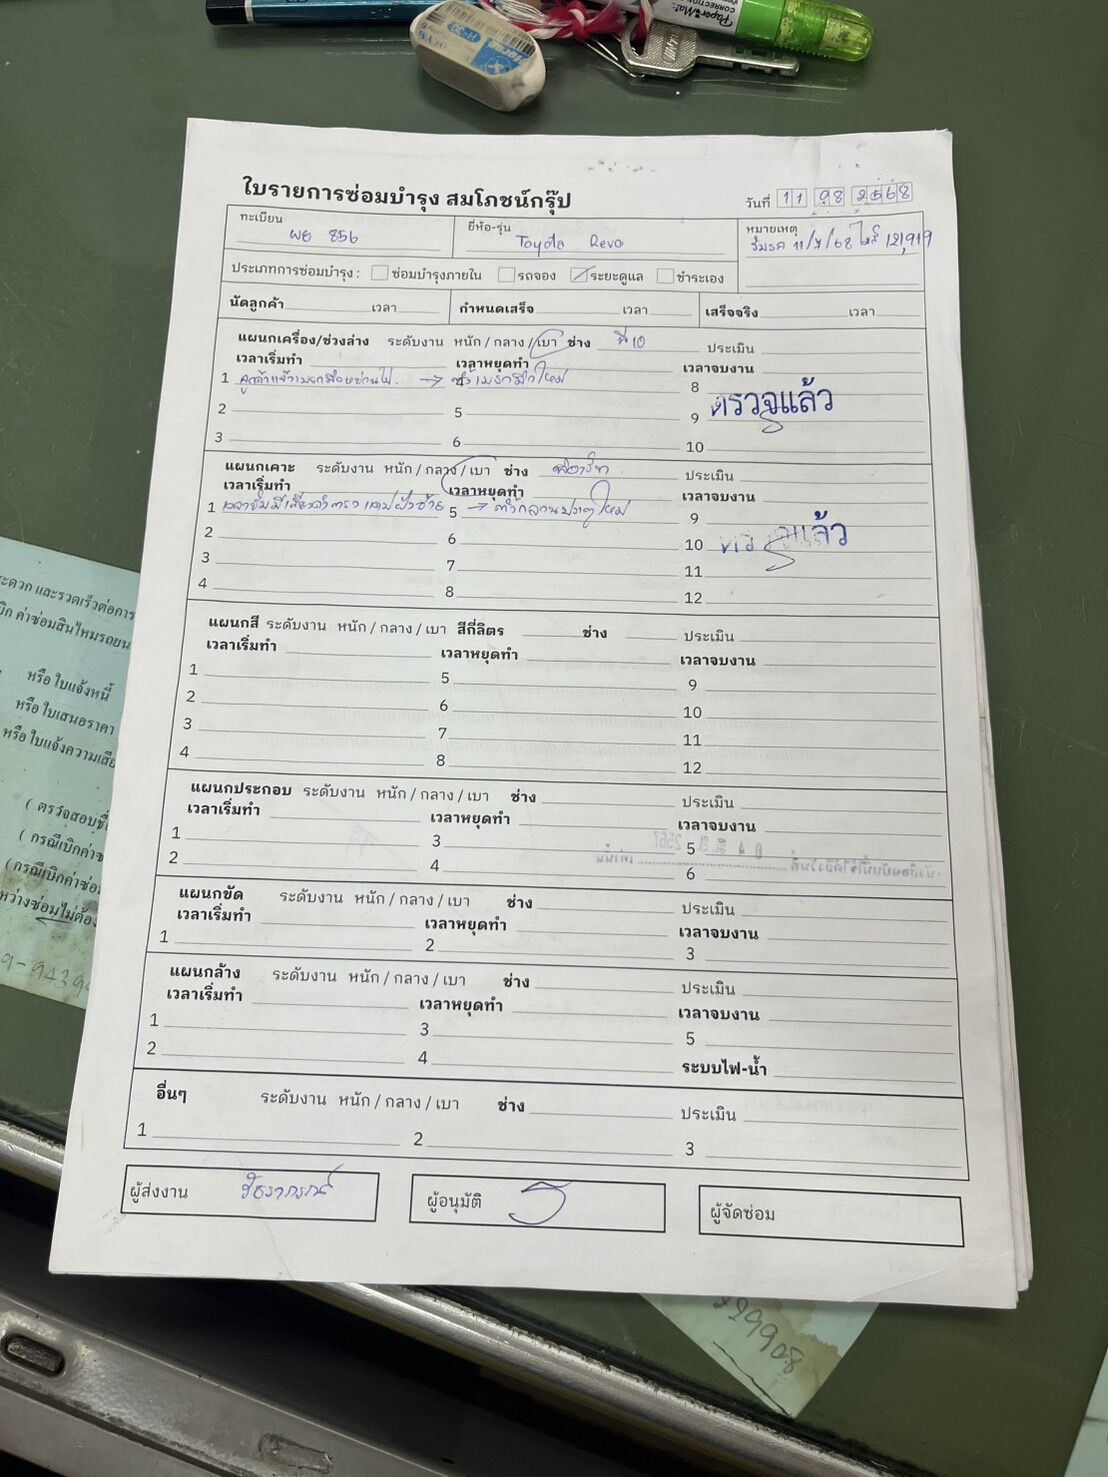 Paper Mate
ใบรายการซ่อมบำรุง สมโภชน์กรุ๊ป
วันที่ 11 08 2568
ทะเบียน
856
ยี่ห้อ-รุ่น
Toyota Revo
หมายเหตุ
11/7/68 121,919
ประเภทการซ่อมบำรุง : ซ่อมบำรุงภายใน รถจอง ระยะดูแล ชำระเอง
นัดลูกค้า เวลา กำหนดเสร็จ เวลา เสร็จจริง เวลา
แผนกเครื่อง/ช่วงล่าง ระดับงาน หนัก / กลาง / เบา ช่าง ประเมิน
เวลาเริ่มทำ เวลาหยุดทำ เวลาจบงาน
1 4 8
ตรวจแล้ว
2 5 9
3 6 10
แผนกเคาะ ระดับงาน หนัก / กลาง / เบา ช่าง ประเมิน
เวลาเริ่มทำ เวลาหยุดทำ เวลาจบงาน
1 5 9
2 6 10 แล้ว
3 7 11
4 8 12
แผนกสี ระดับงาน หนัก / กลาง / เบา สีกี่ลิตร ช่าง ประเมิน
เวลาเริ่มทำ เวลาหยุดทำ เวลาจบงาน
1 5 9
2 6 10
3 7 11
4 8 12
แผนกประกอบ ระดับงาน หนัก / กลาง / เบา ช่าง ประเมิน
เวลาเริ่มทำ เวลาหยุดทำ เวลาจบงาน
1 3 5
2 4 6
แผนกขัด ระดับงาน หนัก / กลาง / เบา ช่าง ประเมิน
เวลาเริ่มทำ เวลาหยุดทำ เวลาจบงาน
1 2 3
แผนกล้าง ระดับงาน หนัก / กลาง / เบา ช่าง ประเมิน
เวลาเริ่มทำ เวลาหยุดทำ เวลาจบงาน
1 3 5
2 4 ระบบไฟ-น้ำ
อื่นๆ ระดับงาน หนัก / กลาง / เบา ช่าง ประเมิน
1 2 3
ผู้ส่งงาน
ผู้อนุมัติ
ผู้จัดซ่อม
และรวดเร็วต่อการ
ค่าซ่อมสินไหมรถยน
หรือ ใบแจ้งหนี้
หรือ ใบเสนอราคา
หรือ ใบแจ้งความเสีย
( ตรวจสอบชื่
( กรณีเบิกค่าซ
(กรณีเบิกค่าซ่อ
หว่างซ่อมไม่ต้อง